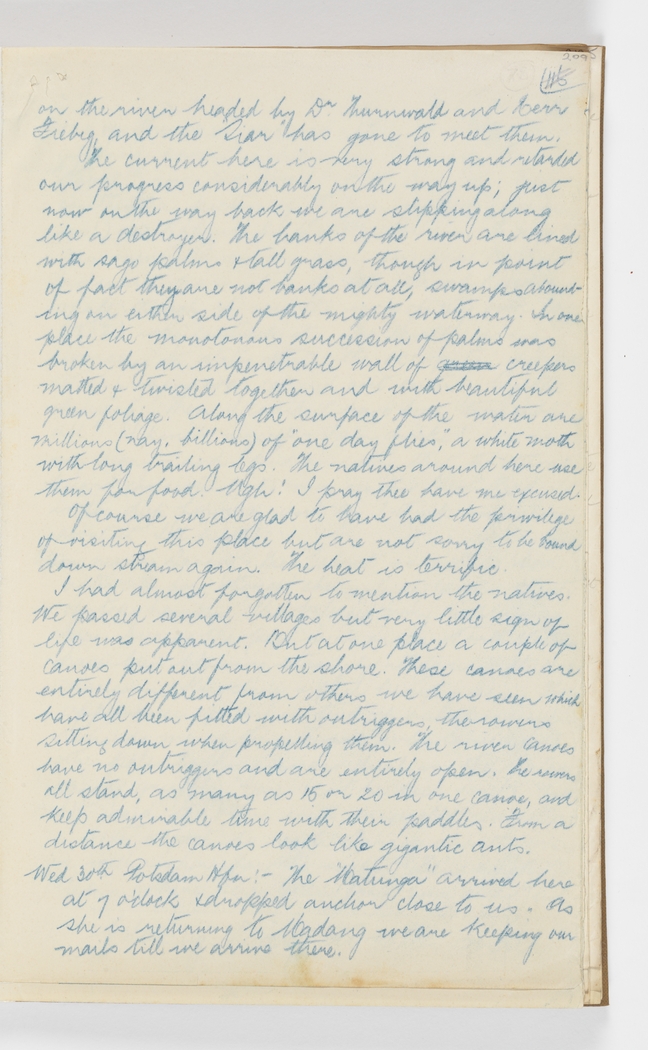 115
on the river headed by Dr Thurnwald and Herr
Fiebig, and the "Siar" has gone to meet them.
The current here is very strong and retarded
our progress considerably on the way up; just
now on the way back we are slipping along
like a destroyer. The banks of the river are lined
with sago palms & tall grass, though in point
of fact they are not banks at all, swamps abound-
ing on either side of the mighty waterway. In one
place the monotonous succession of palms was
broken by an impenetrable wall of creepers
matted & twisted together and with beautiful
green foliage. Along the surface of the water are
millions (nay, billions) of "one day flies", a white moth
with long trailing legs. The natives around here use
them for food. Ugh! I pray thee have me excused.
Of course we are glad to have had the privilege
of visiting this place but are not sorry to be bound
down stream again. The heat is terrific.
I had almost forgotten to mention the natives.
We passed several villages but very little sign of
life was apparent. But at one place a couple of
canoes put out from the shore. These canoes are
entirely different from others we have seen which
have all been fitted with outriggers, the rowers
sitting down when propelling them. The river canoes
have no outriggers and are entirely open. The rowers
all stand, as many as 15 or 20 in one canoe, and
keep admirable time with their paddles. From a
distance the canoes look like gigantic ants.
Wed 30th Potsdam Hfn:- The "Matunga" arrived here
at 7 o'clock & dropped anchor close to us. As
she is returning to Madang we are keeping our
mails till we arrive there.